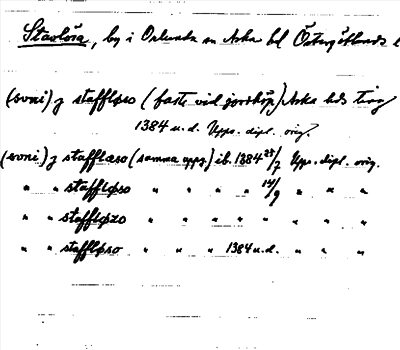 Stavlösa, by i Orlunda sn Aska hd Östergötlands l
(svni) j staffløso (faste vid jordköp) Aska hds ting
1384 u.d. Upps. dipl. orig.
(svni) j staffløso (samma uppg.) ib. 1384 28/7 Upps. dipl. orig.
" " staffløso " " " " 14/9 " " "
" " staffløzo " " " " " " " "
" " staffløso " " " 1384 u.d. " " "